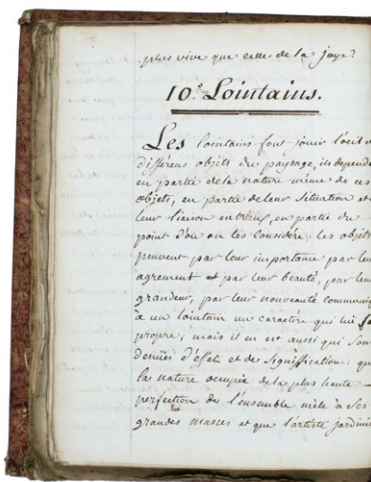 plus vive que celle de la joye?
10.º Lointains.
Les lointains font jouir l'oeil d
differens objets du paysage, ils depende
en partie de la nature même de ces
objets, en partie de leur situation et
leur liaison entr'eux, en partie du
point d'où on les considére; les objets
peuvent par leur importance par leu
agrement et par leur beauté, par leu
grandeur, par leur nouveauté communiqu
à un lointain un caractére qui lui so
propre; mais il en est aussi qui son
denués d'effet et de signification: qu
la nature occupée de la plus haute
perfection de l'ensemble mêle à ses
grandes masses et que l'artiste jardinie